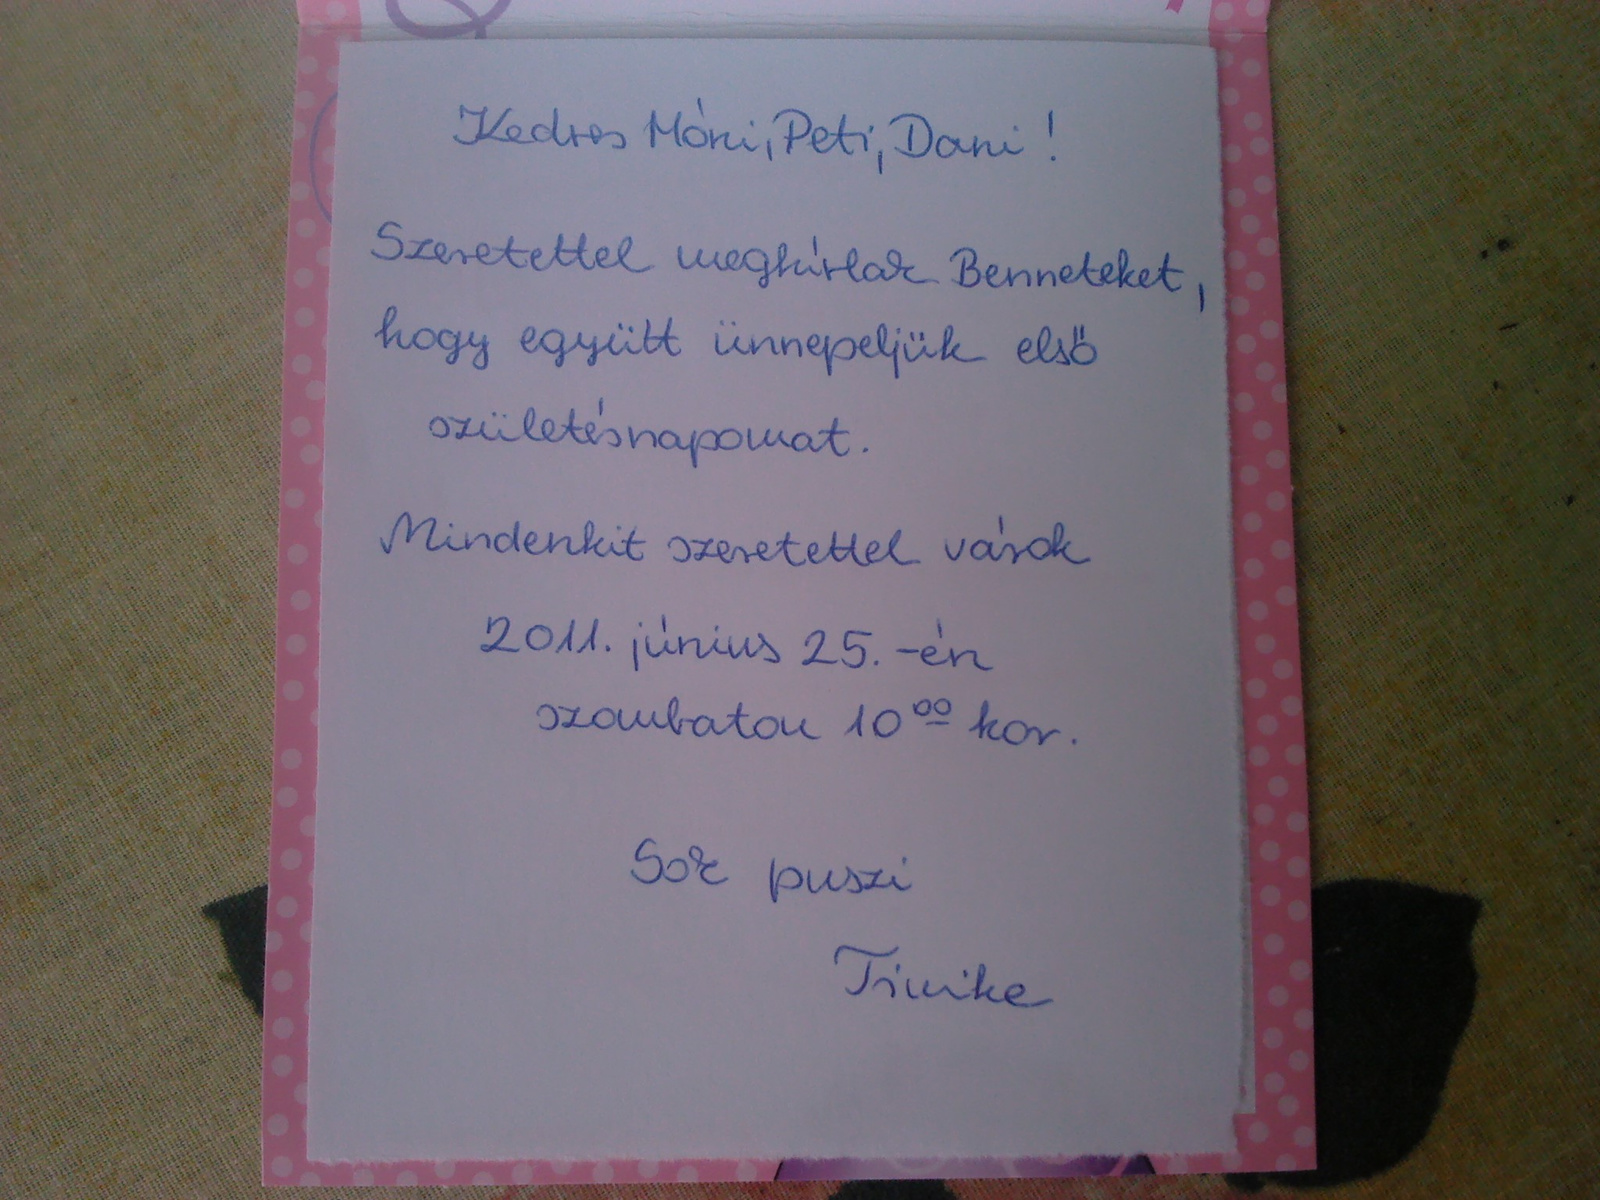 Kedves Móni, Peti, Dani!
Szeretettel meghívlak Benneteket,
hogy együtt ünnepeljük első
születésnapomat.
Mindenkit szeretettel várok
2011. június 25.-én
szombaton 10⁰⁰ kor.
Sok puszi
Timike